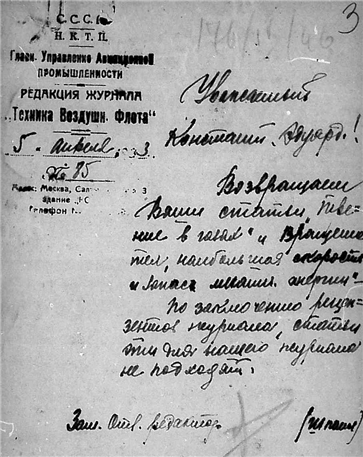 3
С. С. С. Р.
Н. К. Т. П.
Главн. Управление Авиационной
ПРОМЫШЛЕННОСТИ
РЕДАКЦИЯ ЖУРНАЛА
„Техника Воздушн. Флота"
5. апреля 193 3
№ 75
Москва,
Здание
Телефон №
Уважаемый
Константин Эдуард.!
Возвращаем
Ваши статьи,
в газах" и Вращение
тел, наибольшая скорость
и запас механ. энергии"
По заключению рецен-
зентов журнала, статьи
эти для нашего журнала
не подходят.
Зам. Отв. редактор